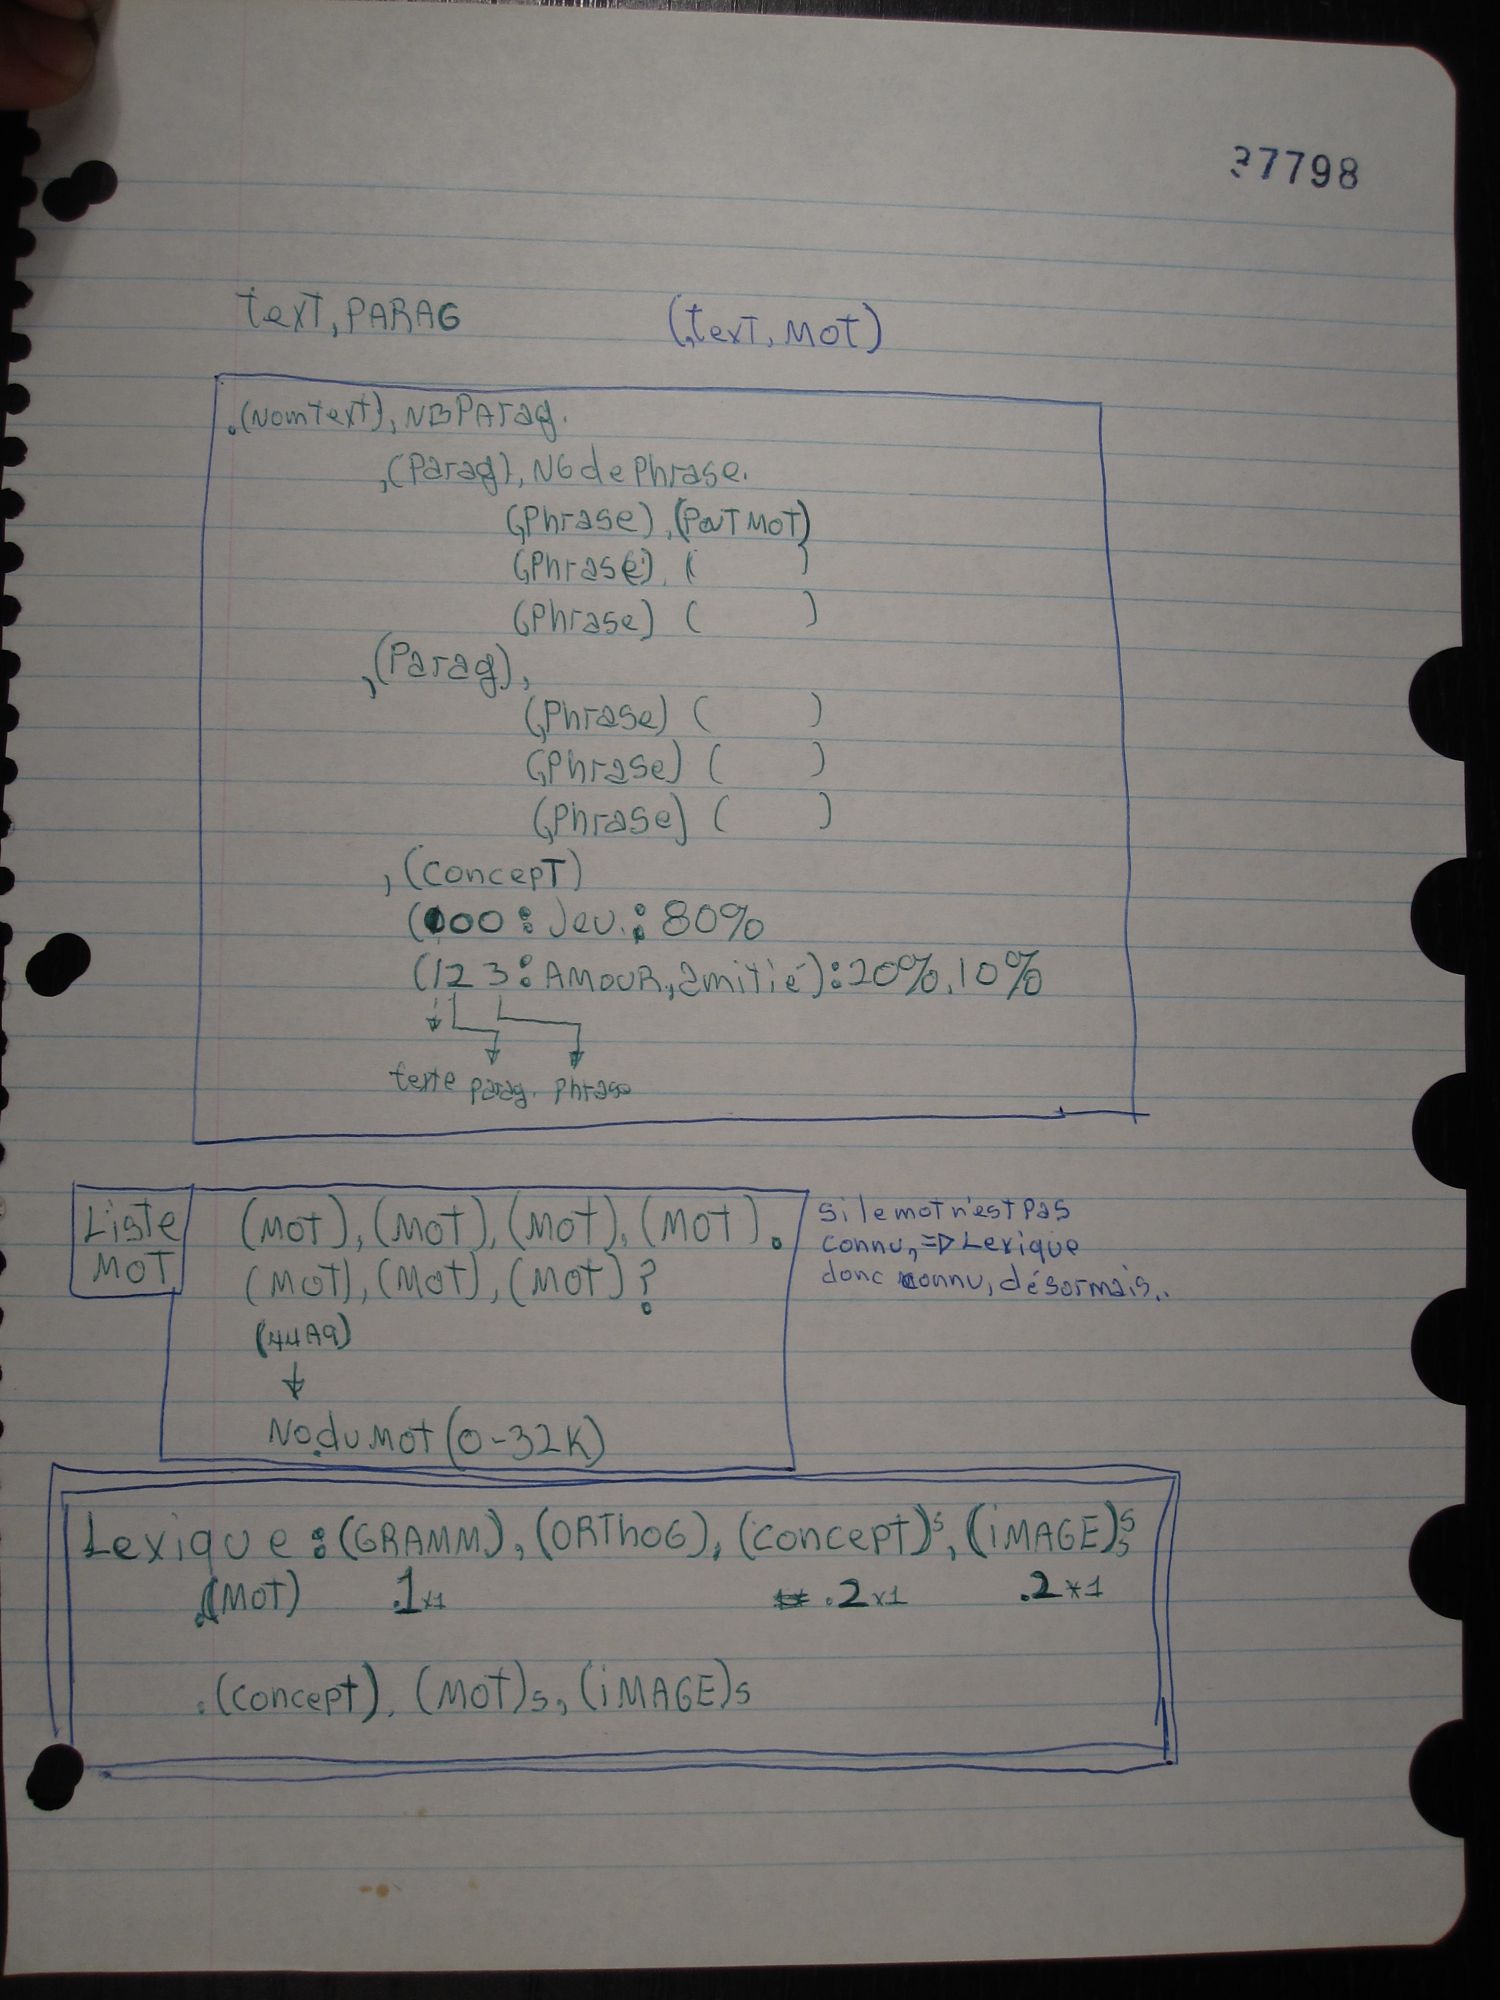 37798
text, PARAG (,text, MOT)
.(Nomtext), NBPArag.
,(Parag), NbdePhrase.
(,Phrase), (PoNTMOT)
(,Phrase), ( )
(,Phrase) ( )
,(Parag),
(,Phrase) ( )
(,Phrase) ( )
(,Phrase) ( )
,(concepT)
(000: Jeu.: 80%
(123: AMOUR, amitié): 20%, 10%
texte parag. phrase
Liste MOT
(MOT), (MOT), (MOT), (MOT).
(MOT), (MOT), (MOT)?
(44A9)
No.du MOT (0-32K)
si le mot n'est pas
connu, => Lexique
donc connu, désormais..
Lexique: (GRAMM), (ORThOG), (concept)s, (iMAGE)s
.(MOT) .1x1 .2x1 .2*1
.(concept), (MOT)s, (iMAGE)s